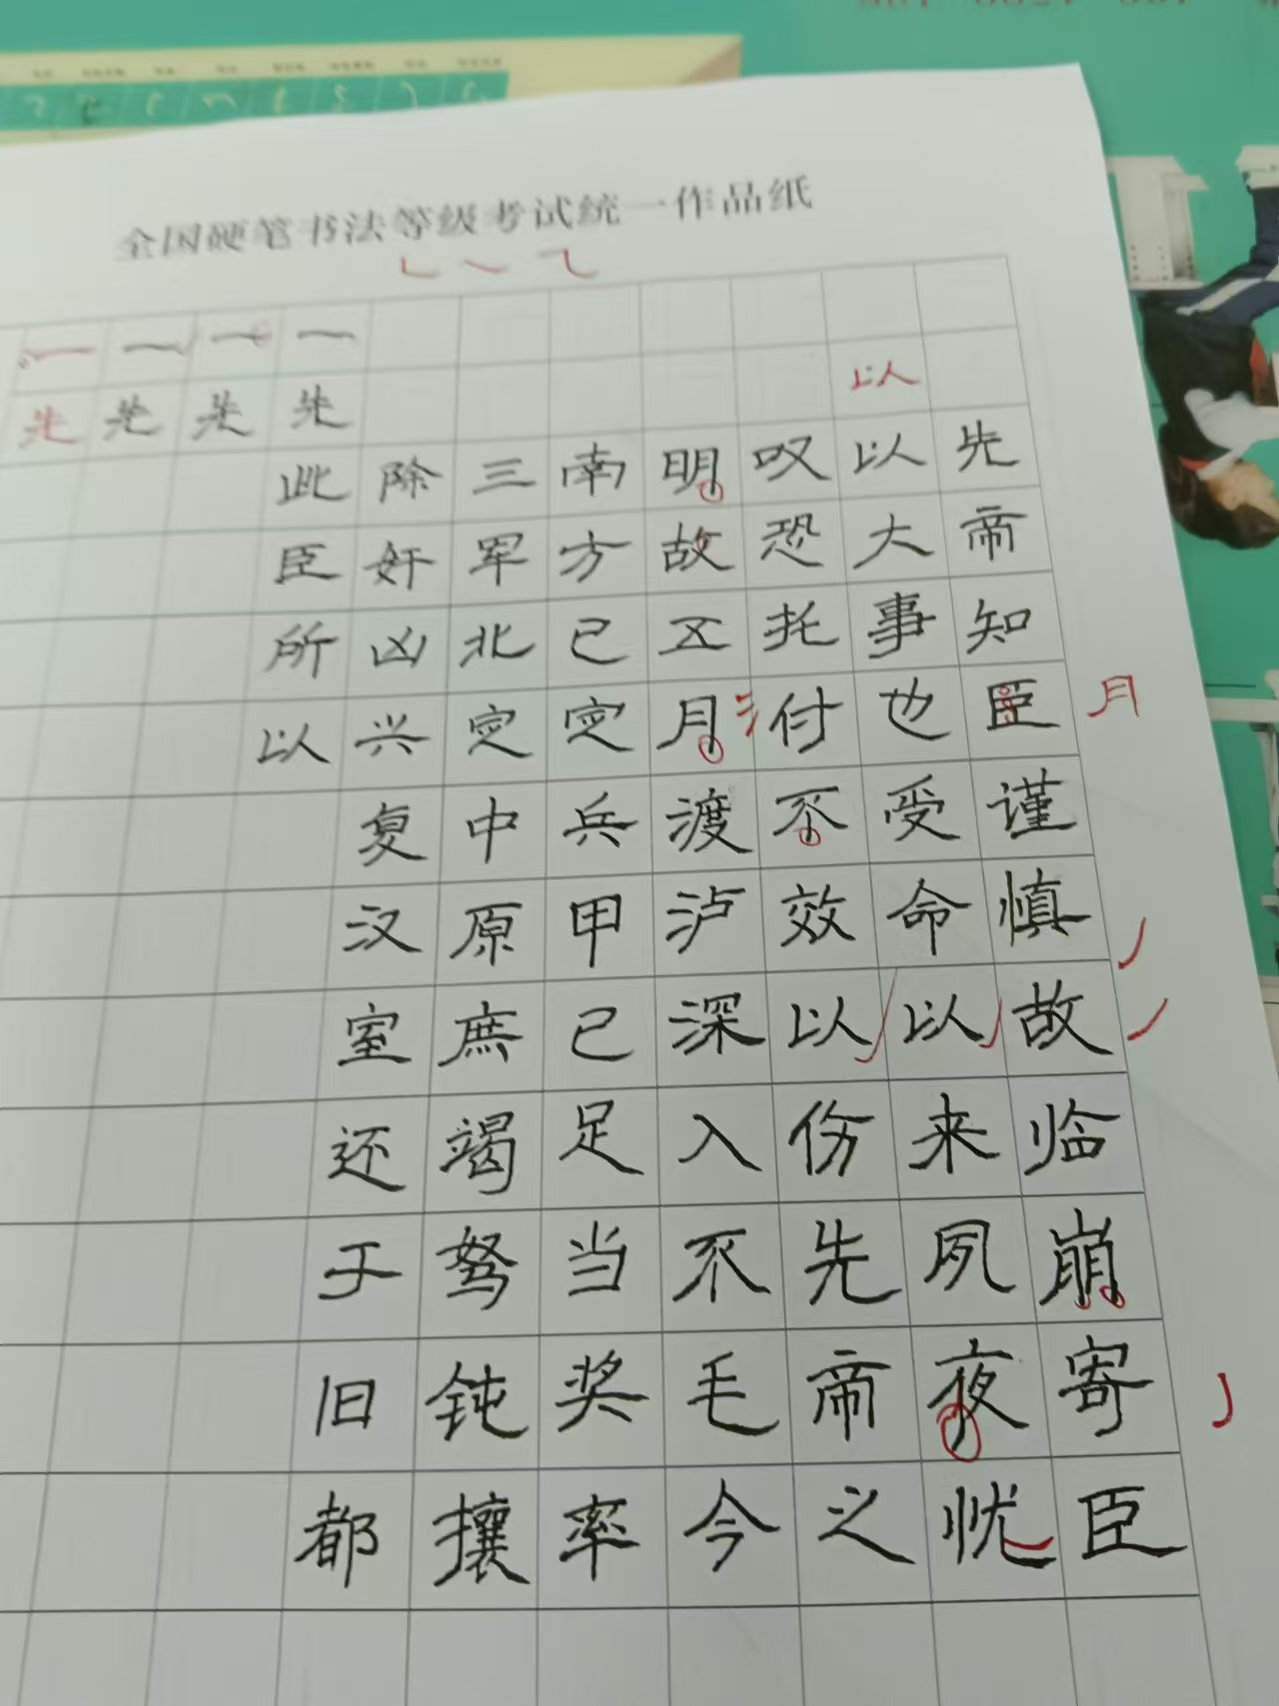 全国硬笔书法等级考试统一作品纸
先帝知臣谨慎故临崩寄臣
以
以大事也受命以来夙夜忧
叹恐托付不效以伤先帝之
明故五月渡泸深入不毛今
南方已定兵甲已足当奖率
三军北定中原庶竭驽钝攘
除奸凶兴复汉室还于旧都
一先此臣所以
一先
一先
一先
月